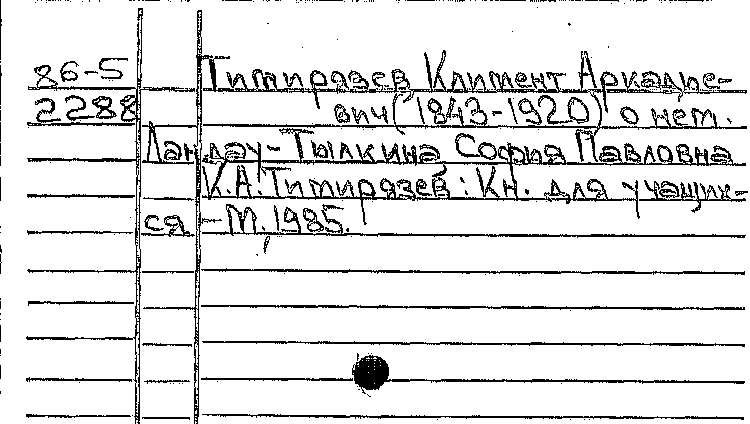 86-5 Тимирязев Климент Аркадье-
2288 вич (1843-1920) о нем.
Ландау-Тылкина София Павловна
К.А. Тимирязев: Кн. для учащих-
ся - М., 1985.